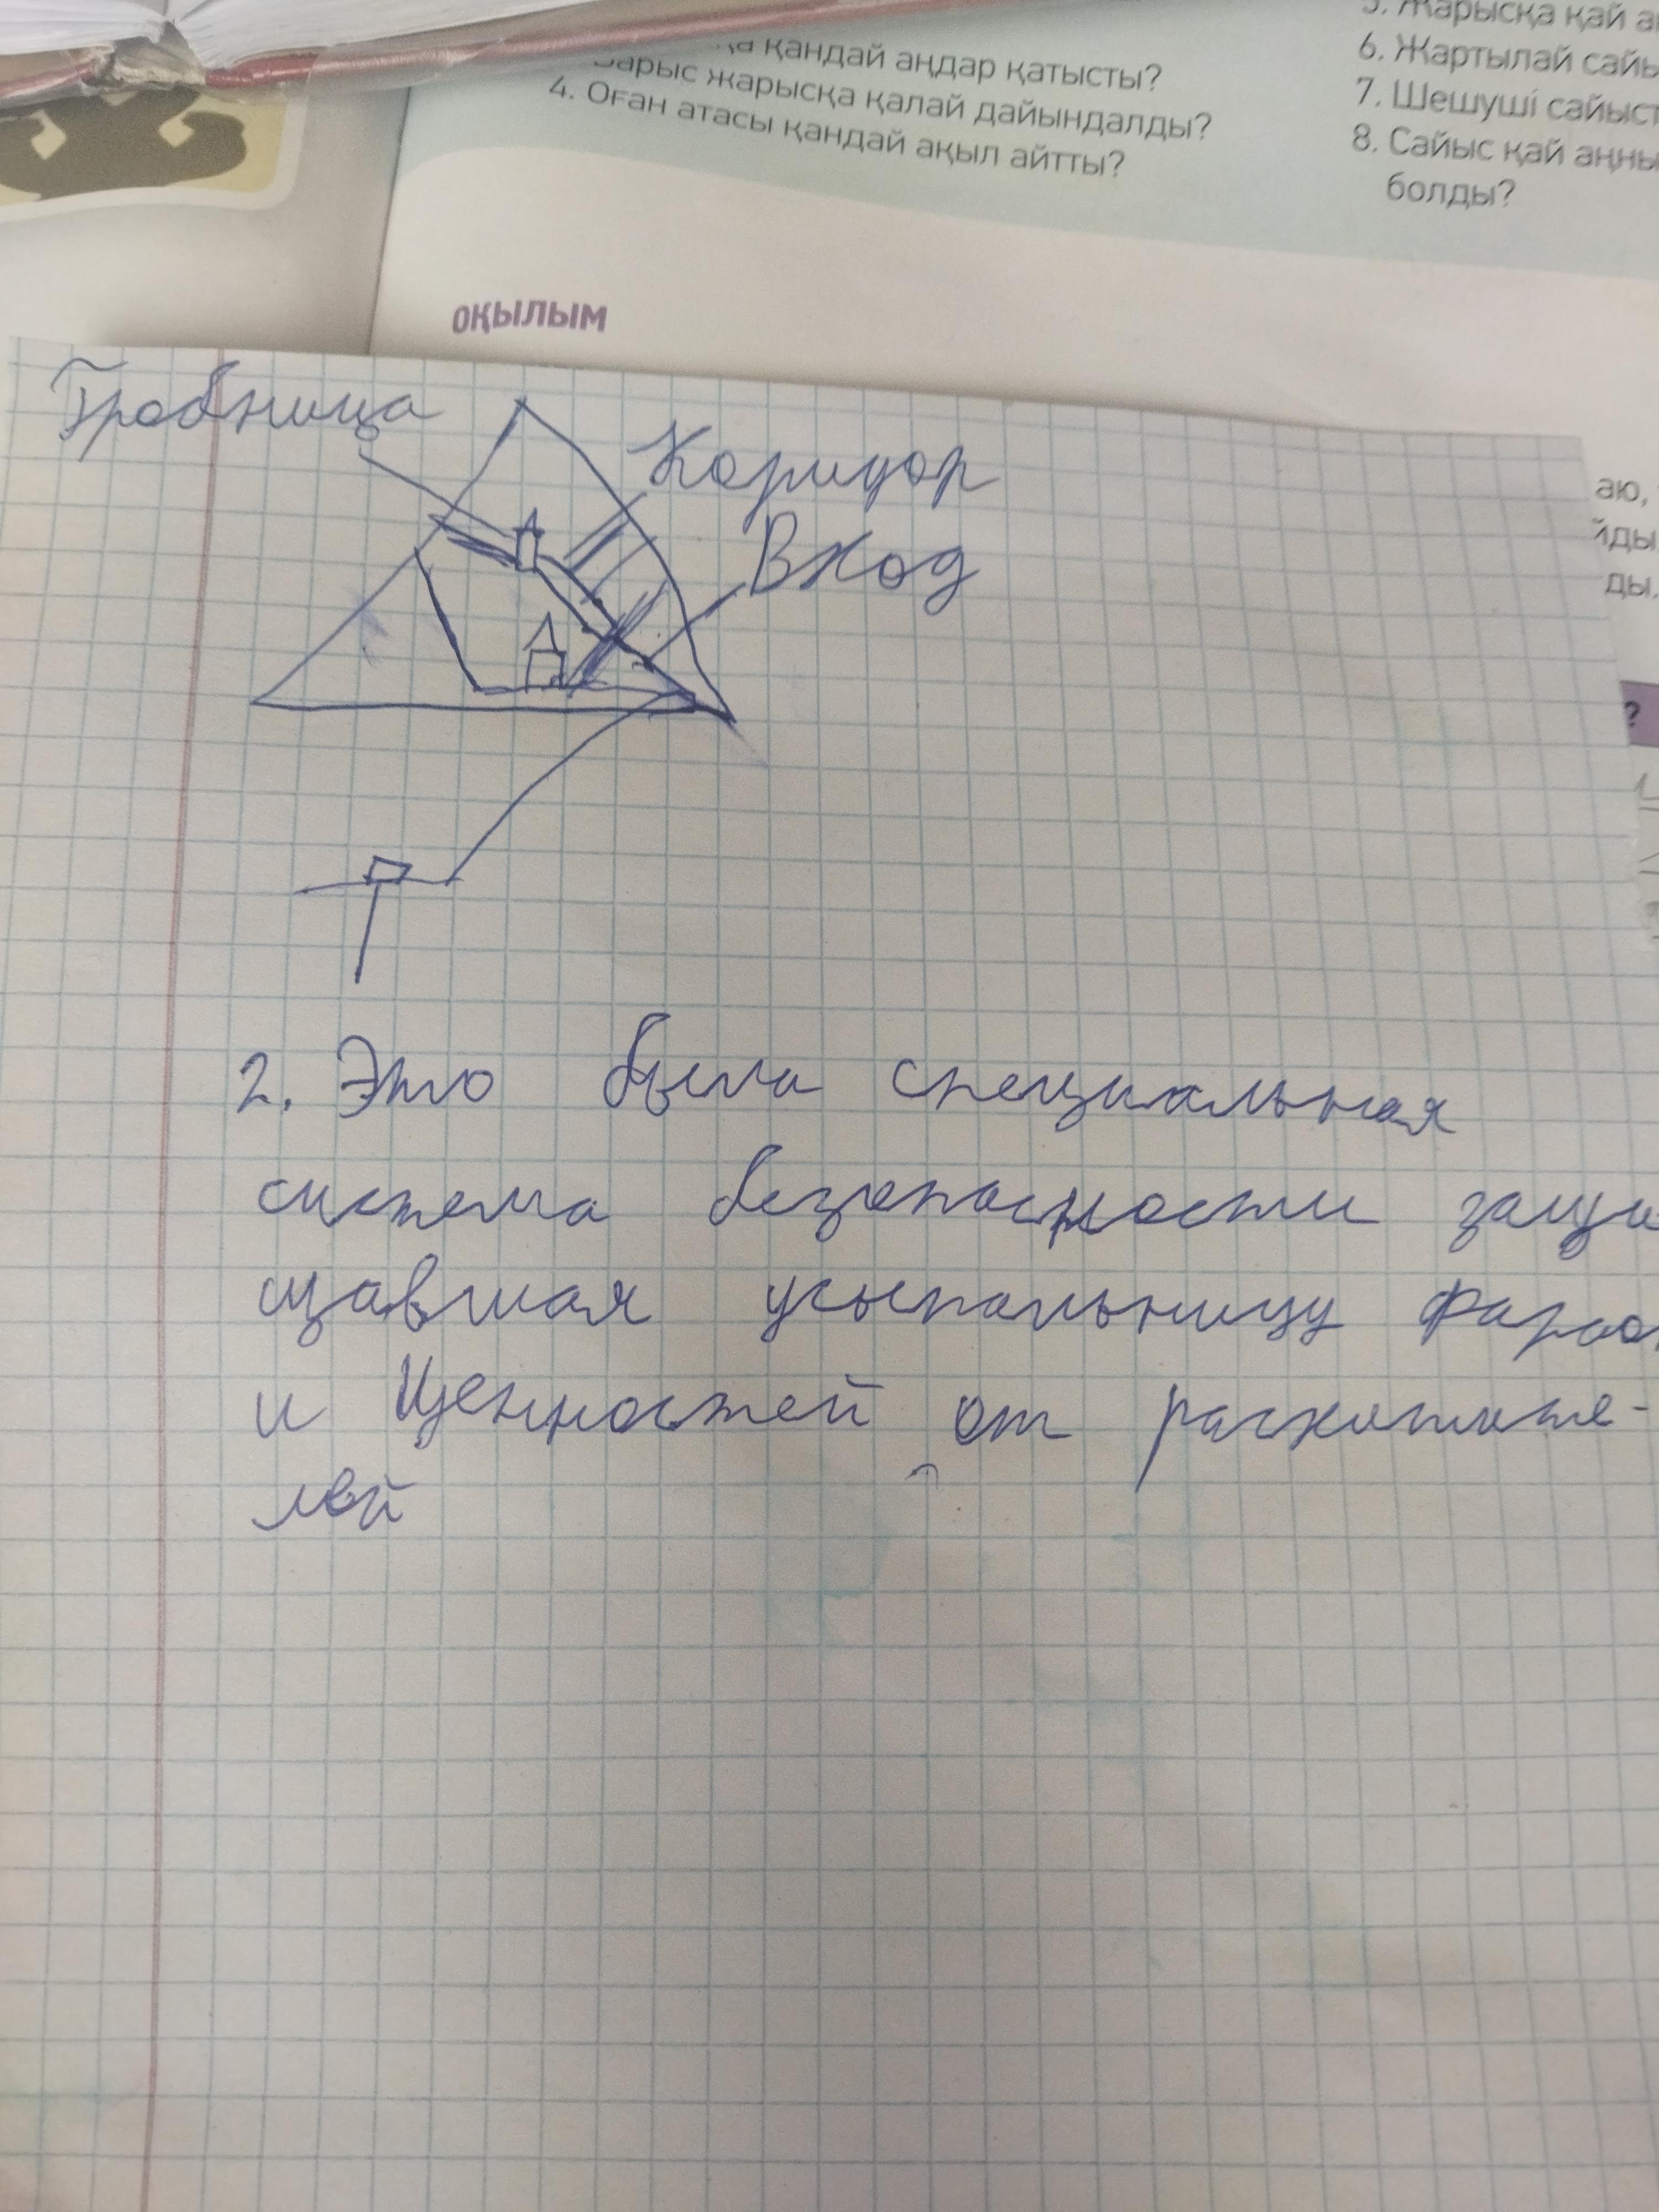 қандай аңдар қатысты?
жарысқа қалай дайындалды?
4. Оған атасы қандай ақыл айтты?
6. Жартылай
7. Шешуші
8. Сайыс қай
болды?
ОҚЫЛЫМ
Гробница
Коридор
Вход
2. Это была специальная
система безопасности защи
щавшая усыпальницу
и Ценностей от расхитите-
лей